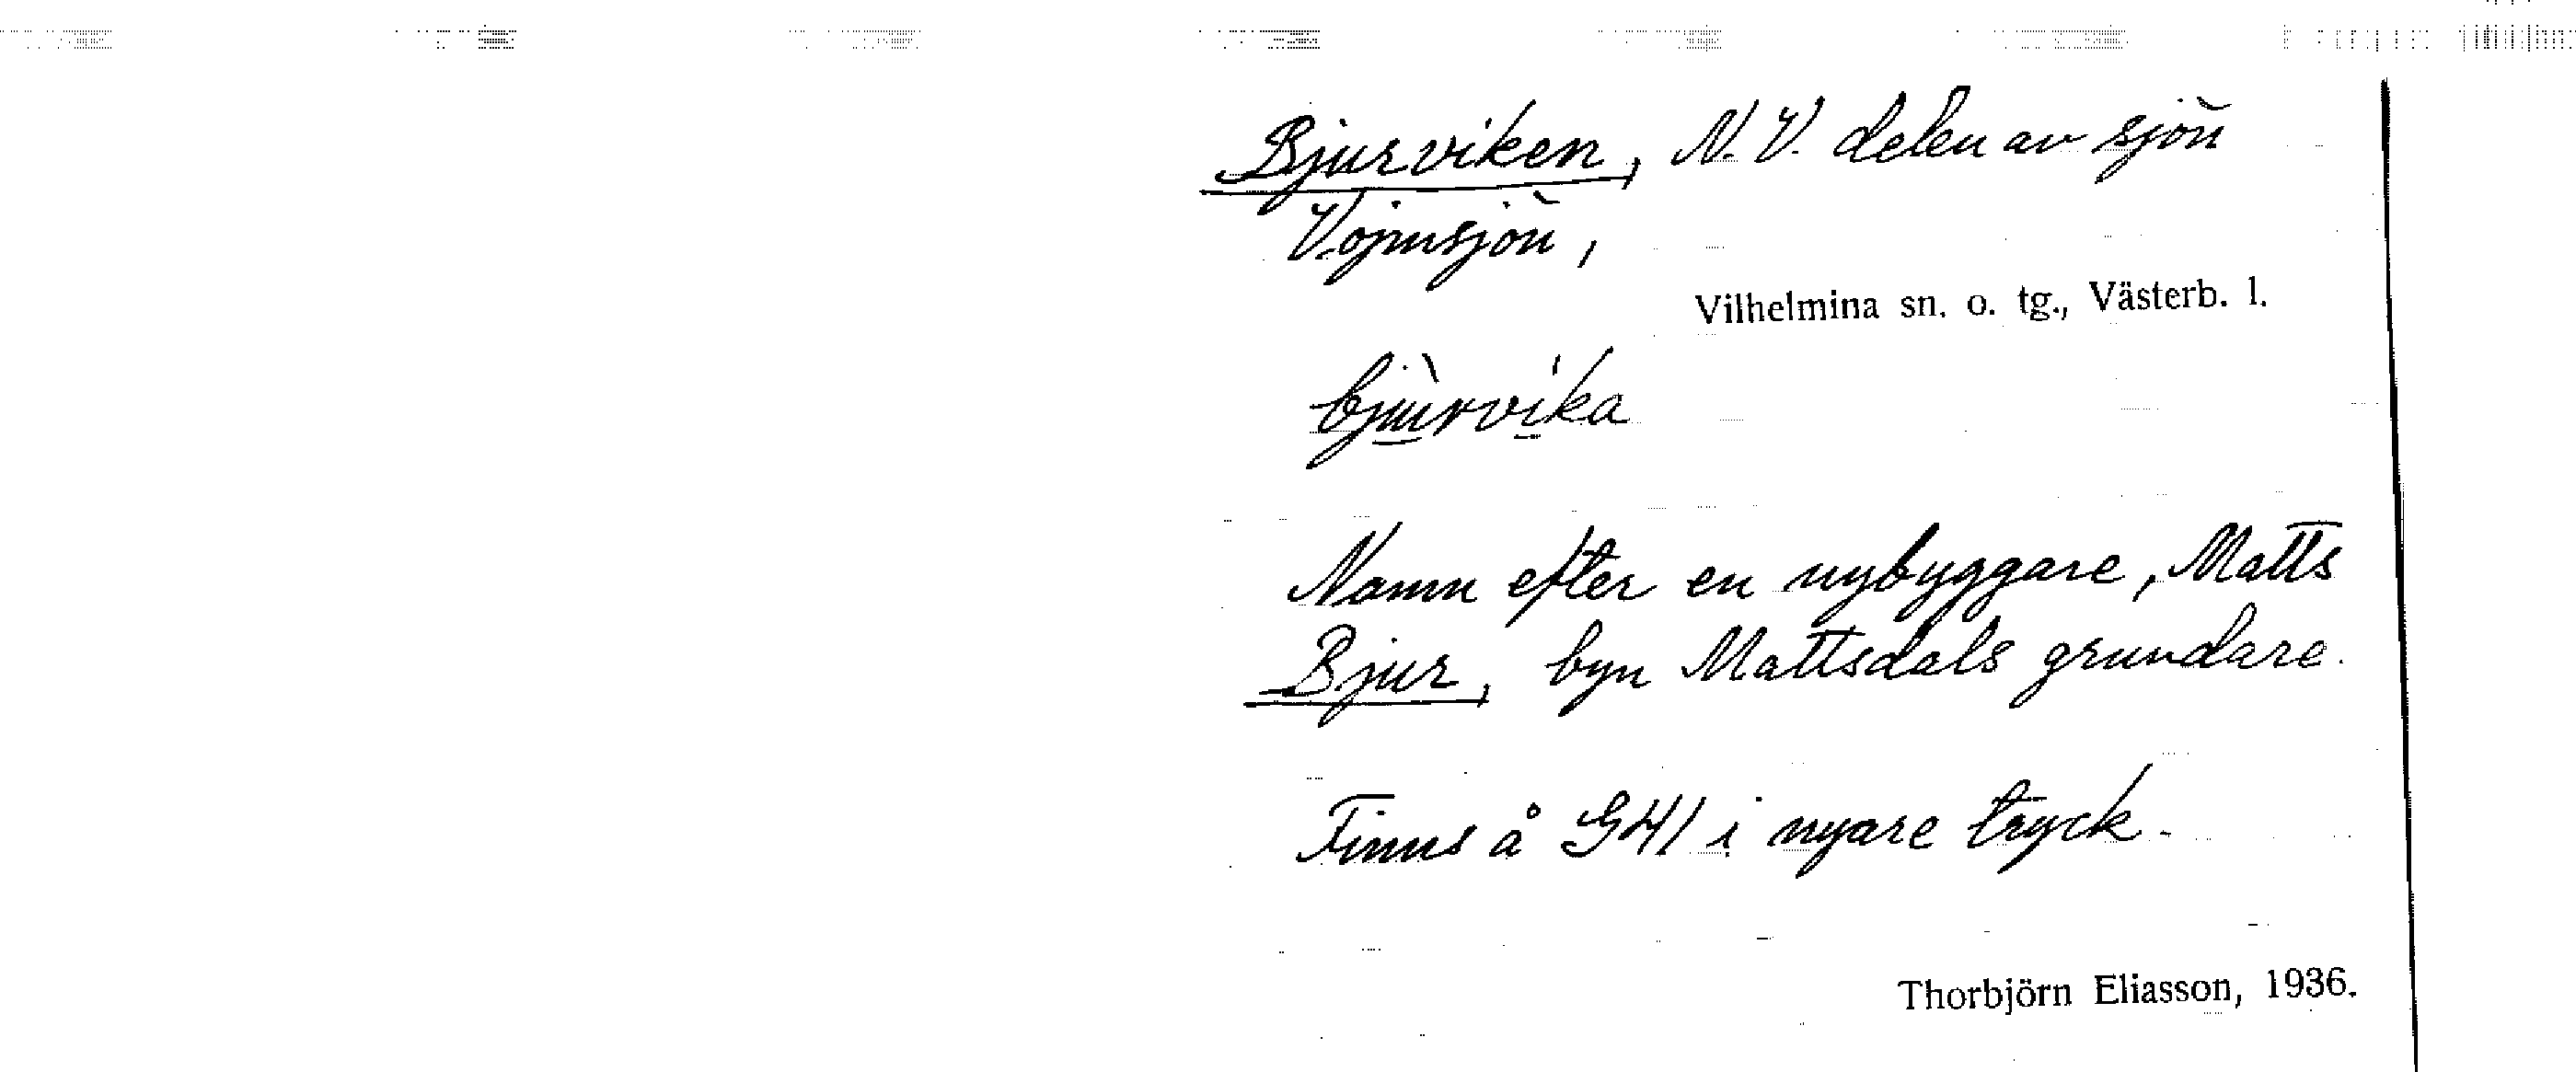 Bjurviken, N.V. delen av sjön
Vojmsjön,
Vilhelmina sn. o. tg., Västerb. l.
bjùrvika
Namn efter en nybyggare, Matts
Bjur, byn Mattsdals grundare.
Finns å G41 i nyare tryck.
Thorbjörn Eliasson, 1936.